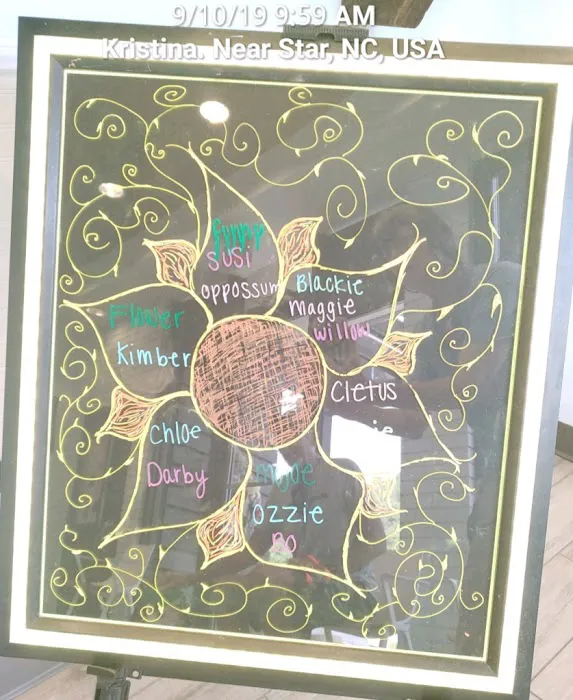 9/10/19 9:59 AM
Kristina. Near Star, NC, USA
Susi
oppossum
Blackie
Maggie
Willow
Flower
Kimber
Cletus
Chloe
Darby
Ozzie
Bo